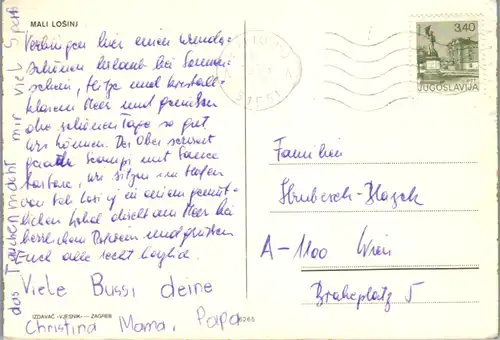 MALI LOŠINJ
Verbringen hier einen wunder-
schönen Urlaub bei Sonnen-
schein, Hitze und kristall-
klarem Meer und genießen
die schönen Tage so gut
wir können. Der Ober serviert
gerade Scampi mit Sauce
tartare, wir sitzen im Hafen
von Mali Losinj in einem gemüt-
lichen Lokal direkt am Meer bei
herrlichem und grüßen
Euch alle recht herzlich.
Viele Bussi deine
Christina Mama, Papa
das Tauchen macht mir viel Spaß
IZDAVAČ »VJESNIK« — ZAGREB
6265
3,40
JUGOSLAVIJA
51551
Familien
Hrubesch-
A-1100 Wien
Braheplatz 5